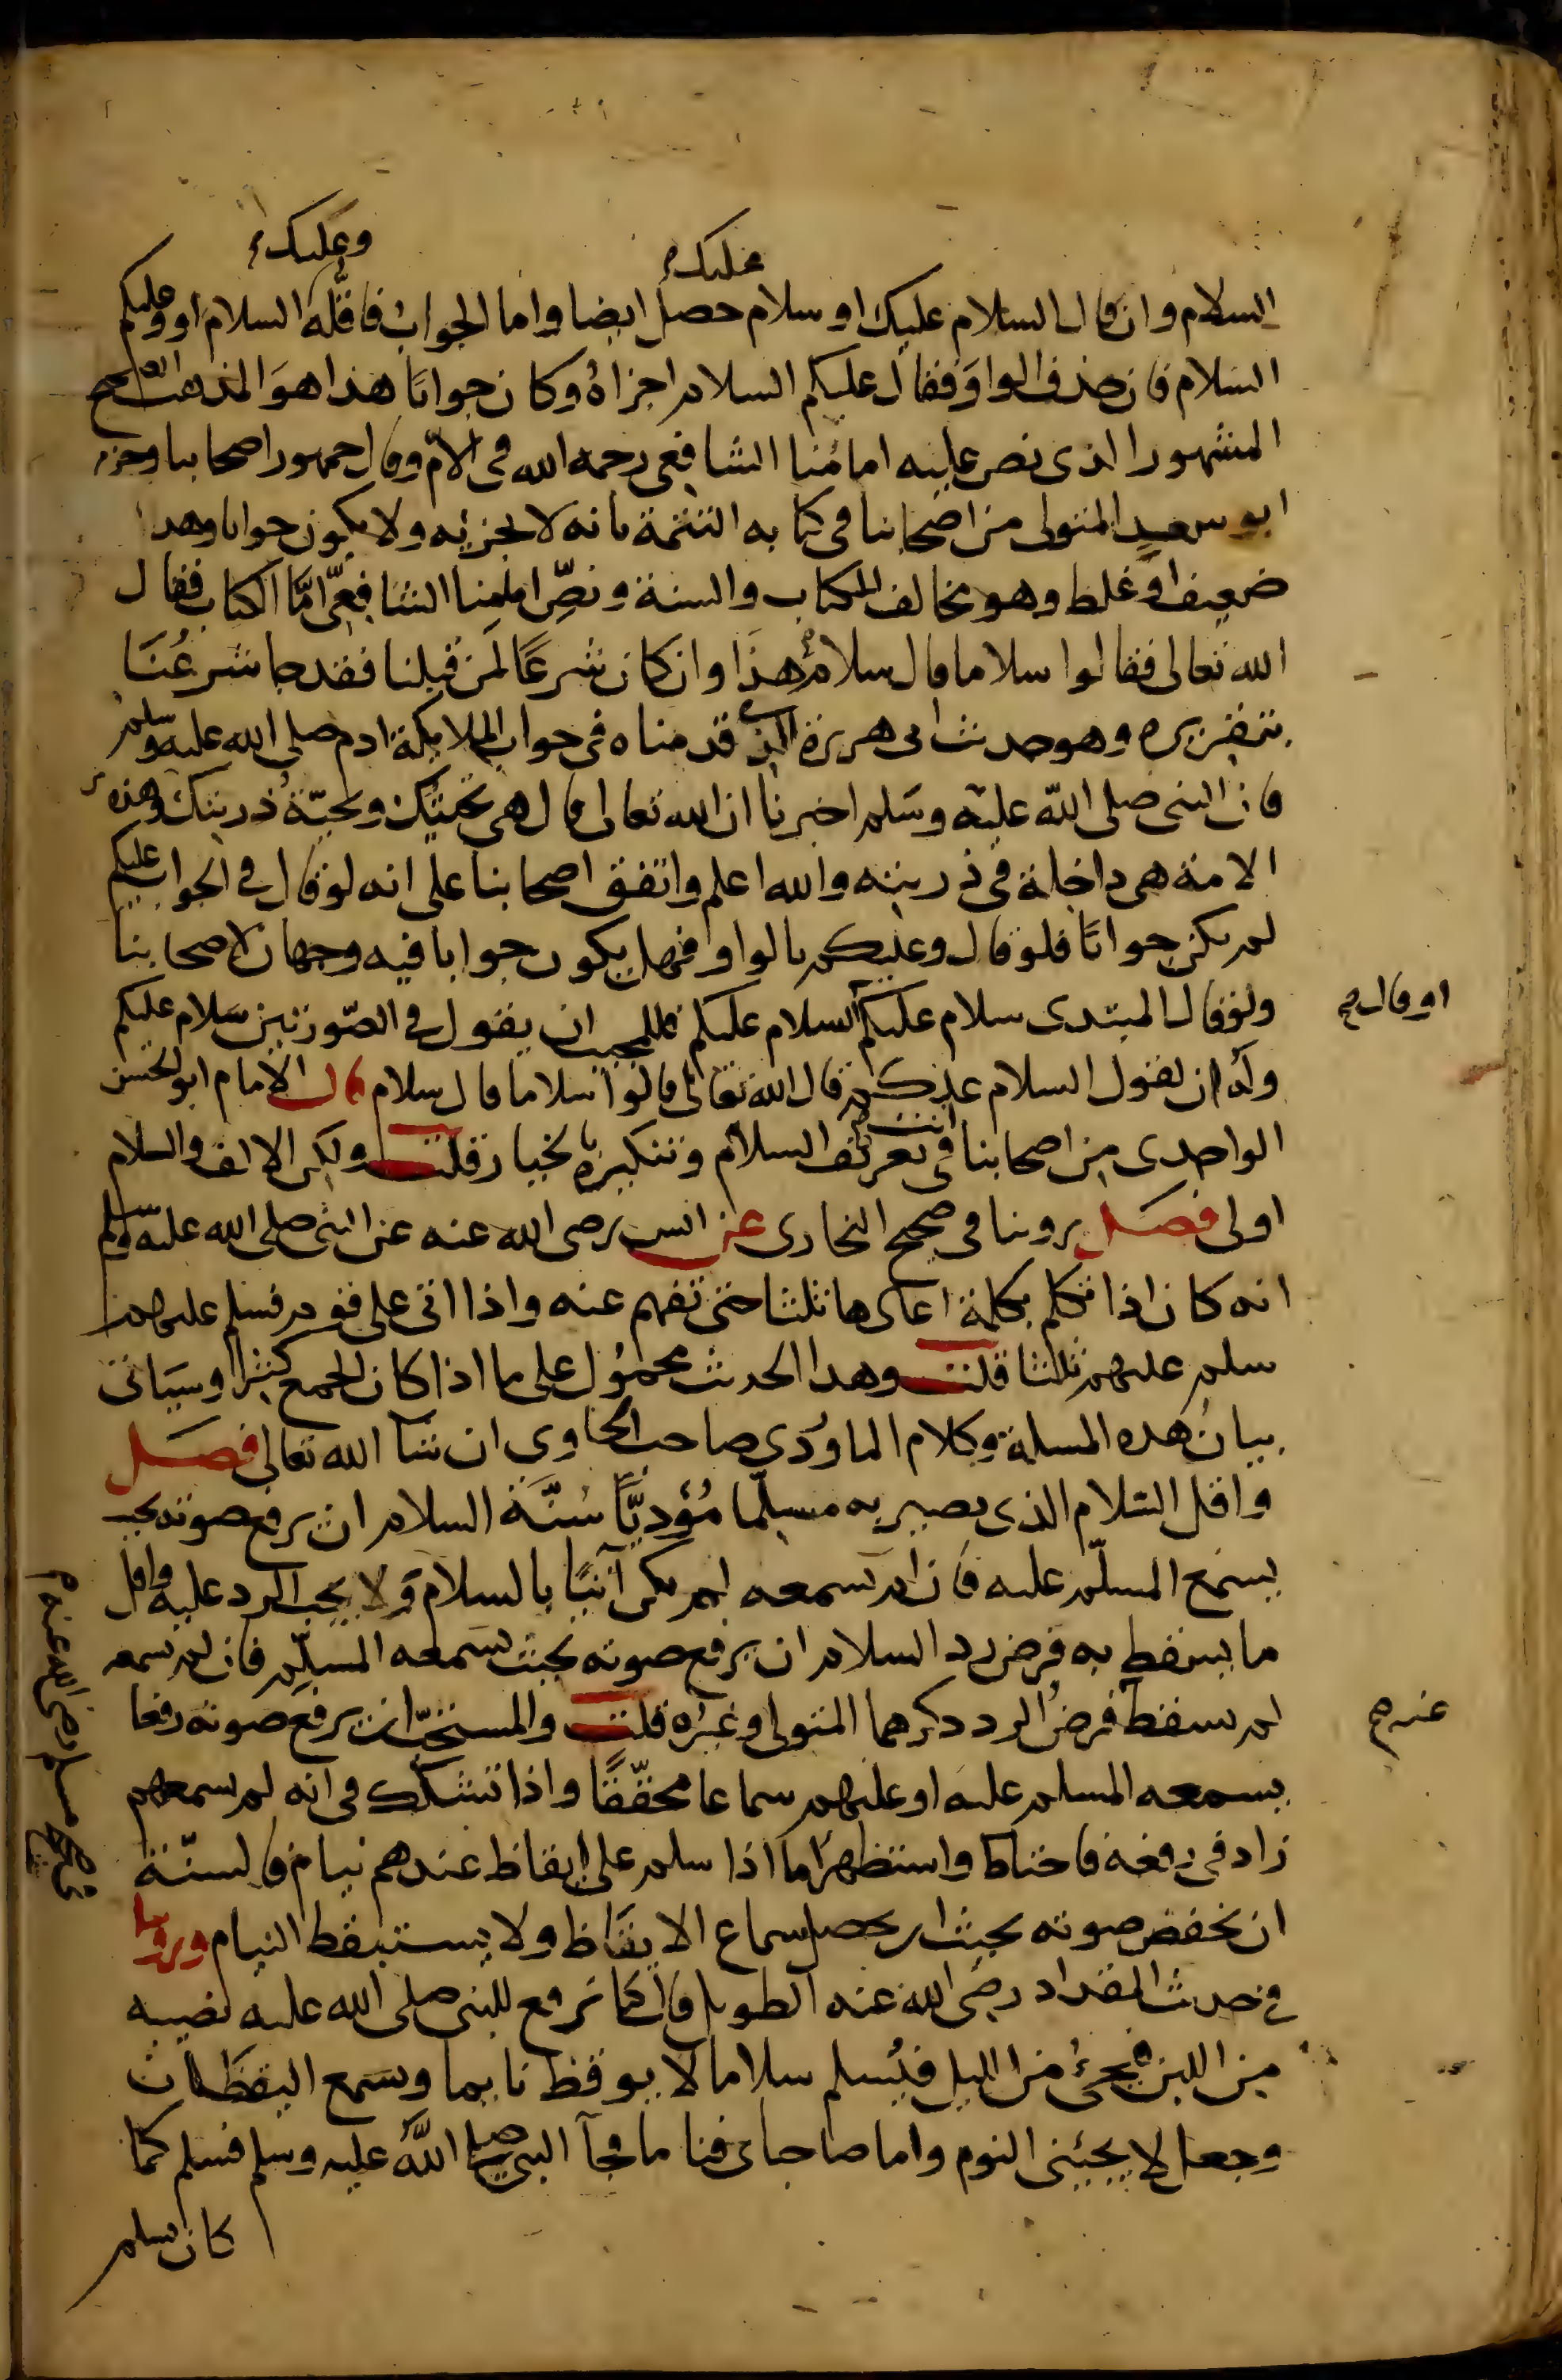 عليك
وعليك
السلام وان قال السلام عليك او سلام حصل ايضا واما الجواب فاقله السلام او وعليكم
السلام فان حذف الواو فقال عليكم السلام اجزاه وكان جوابا هذا هو المذهب الصحيح
المشهور الذى نص عليه امامنا الشافعى رحمه الله فى الام وقال جمهور اصحابنا وجزم
ابو سعيد المتولى من اصحابنا فى كتابه التتمة بانه لا يجزئه ولا يكون جوابا وهذا
ضعيف او غلط وهو مخالف للكتاب والسنة ونص امامنا الشافعى اما الكتاب فقال
الله تعالى فقالوا سلاما قال سلام هذا وان كان شرعا لمن قبلنا فقد جا شرعنا
بتقريره وهو حديث ابى هريرة الذى قدمناه فى جواب الملايكة ادم صلى الله عليه وسلم
فان النبى صلى الله عليه وسلم اخبرنا ان الله تعالى قال هى تحيتك وتحية ذريتك وهذه
الامة هى داخلة فى ذريته والله اعلم واتفق اصحابنا على انه لو قال فى الجواب عليكم
لم يكن جوابا فلو قال وعليكم بالواو فهل يكون جوابا فيه وجهان لاصحابنا
ولو قال المبتدى سلام عليكم السلام عليكم فللمجيب ان يقول فى الصورتين سلام عليكم
او قال صح
وله ان يقول السلام عليكم قال الله تعالى قالوا سلاما قال سلام قال الامام ابو الحسن
الواحدى من اصحابنا انت فى تعريف السلام وتنكيره بالخيار قلت ولكن الالف والسلام
اولى فصل روينا فى صحيح البخارى عن انس رضى الله عنه عن النبى صلى الله عليه وسلم
انه كان اذا تكلم بكلمة اعادها ثلثا حتى تفهم عنه واذا اتى على قوم فسلم عليهم
سلم عليهم ثلثا قلت وهذا الحديث محمول على ما اذا كان الجمع كثيرا وسياتى
بيان هذه المسلة وكلام الماوردى صاحب الحاوى ان شا الله تعالى فصل
واقل السلام الذى يصير به مسلما مؤديا سنة السلام ان يرفع صوته بحيث
يسمع المسلم عليه فان لم يسمعه لم يكن آتيا بالسلام ولا يجب الرد عليه واقل
ما يسقط به فرض رد السلام ان يرفع صوته بحيث يسمعه المسلم فان لم يسمعه
لم يسقط فرض الرد ذكرهما المتولى وغيره قلت والمستحب ان يرفع صوته رفعا
عنده صح
يسمعه المسلم عليه او عليهم سماعا محققا واذا تشكك فى انه لم يسمعهم
زاد فى رفعه فاحتاط واستظهر اما اذا سلم على ايقاظ عندهم نيام فالسنة
ان يخفض صوته بحيث يحصل سماع الايقاظ ولا يستيقظ النيام وروينا
فى صحيح مسلم رضى الله عنه
فى حديث المقداد رضى الله عنه الطويل قال كنا نرفع للنبى صلى الله عليه نصيبه
من اللبن فيجئ من الليل فيسلم سلاما لا يوقظ نايما ويسمع اليقظان
وجعل لا يجيئنى النوم واما صاحباى فناما فجآ النبى صلى الله عليه وسلم فسلم كما
كان يسلم